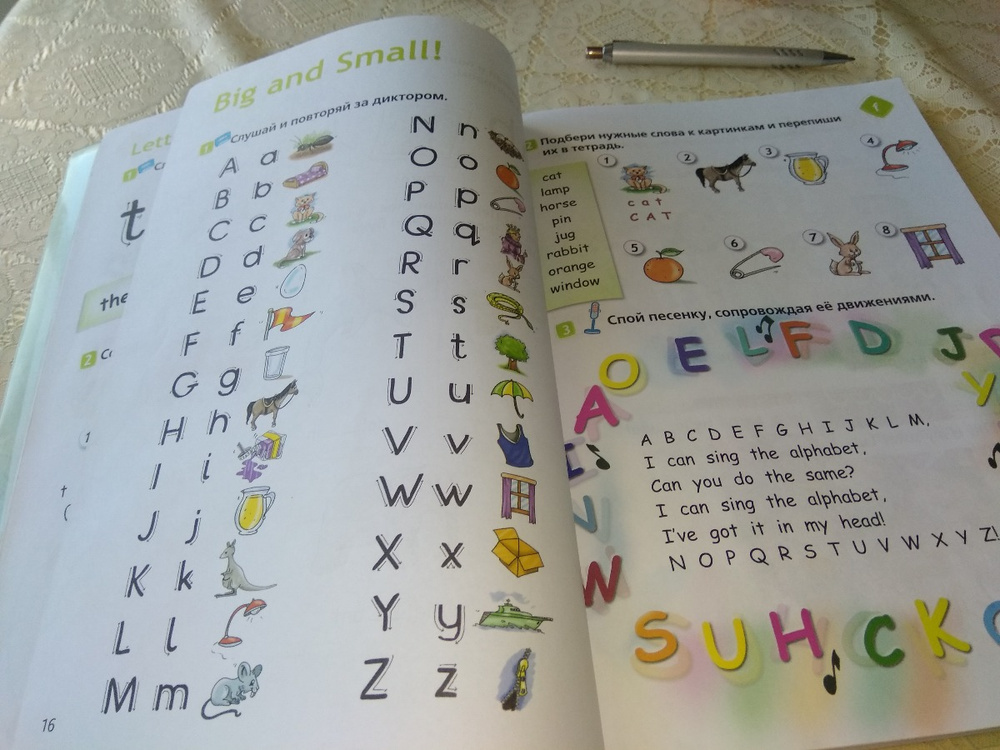 Lett
1
t
the
2
1
t
Big and Small!
1 Слушай и повторяй за диктором.
A a
B b
C c
D d
E e
F f
G g
H h
I i
J j
K k
L l
M m
N n
O o
P p
Q q
R r
S s
T t
U u
V v
W w
X x
Y y
Z z
16
1
2 Подбери нужные слова к картинкам и перепиши
их в тетрадь.
cat
lamp
horse
pin
jug
rabbit
orange
window
1 2 3 4
cat
CAT
5 6 7 8
3 Спой песенку, сопровождая её движениями.
A O E L F D J Y
I V W
A B C D E F G H I J K L M,
I can sing the alphabet,
Can you do the same?
I can sing the alphabet,
I've got it in my head!
N O P Q R S T U V W X Y Z!
S U H C K